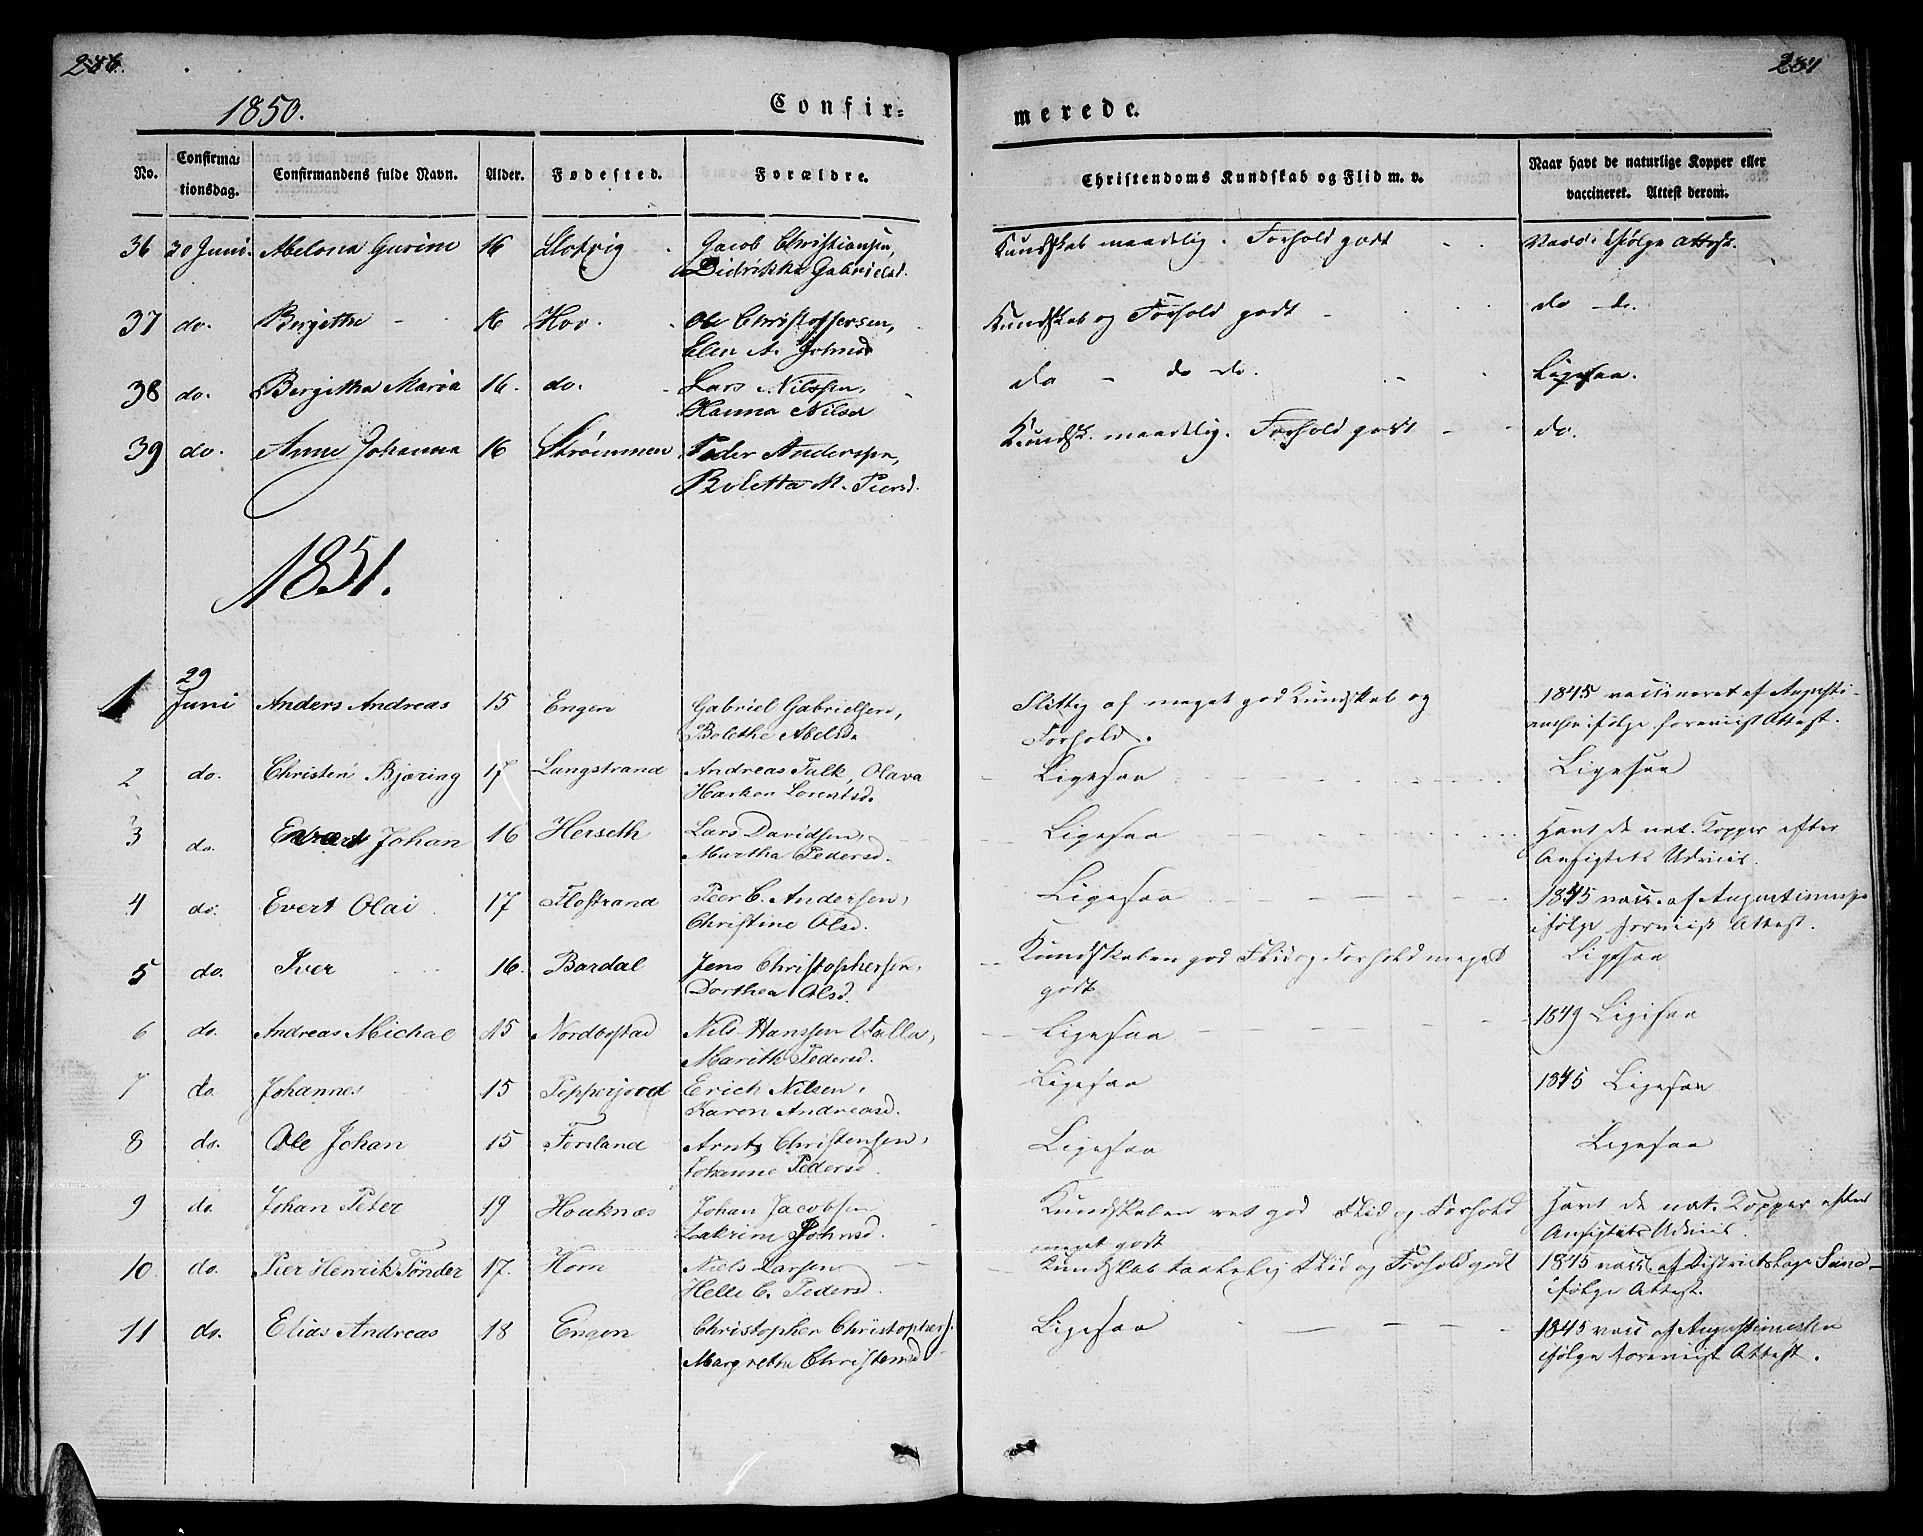 286.
1850.
Confir=
No.
Confirma=
tionsdag.
Confirmandens fulde Navn.
Alder.
Fødested.
Forældre.
36 30 Juni. Abelona Gurine 16 Slotvig Jacob Christiansen,
Didrikka Gabrielsd.
37 do. Birgithe 16 Hov. Ole Christophersen,
Elen A. Johnsd
38 do. Bergitha Maria 16. do. Lars Nilssen,
Hanna Nilsd
39 do. Anne Johanna 16 Strømmen Peder Andersen,
Boletta M. Piersd.
1851.
29
1 Juni Anders Andreas 15 Engen Gabriel Gabrielsen,
Bolethe Abelsd.
2 do. Christen Bjæring 17 Langstrand Andreas Falk, Olava
Harken Lorentsd.
3 do. Evert Johan 16 Herseth Lars Davidsen,
Martha Pedersd.
4 do. Evert Olai 17 Flostrand Peer C. Andersen,
Christine Olsd.
5 do. Iver 16. Bardal Jens Christophersen,
Dorthea Olsd.
6 do. Andreas Michal 15 Nordbostad Nils Hanssen Valla,
Marith Pedersd.
7 do. Johannes 15 Pepperjord Erich Nilsen,
Karen Andreasd.
8 do. Ole Johan 15 Forsland Arnt Christensen,
Johanne Pedersd.
9 do. Johan Peter 19 Houknæs Johan Jacobsen
Lakrine Johnsd.
10. do. Pier Henrik Tønder 17. Horn Niels Larsen
Helle C. Pedersd.
11 do. Elias Andreas 18 Engen Christopher Christophers.
Margrethe Christensd
merede.
Christendoms Kundskab og Flid m. v.
Naar havt de naturlige Kopper eller
vaccineret. Attest derom.
Kundskab maadelig. Forhold godt ifølge Attest.
Kundskab og Forhold godt do do.
do do do. Ligesaa.
Kundsk. maadelig. Forhold godt do.
Flittig af meget god Kundskab og 1845 vaccineret af Augusti-
Forhold. ifølge foreviist Attest.
Ligesaa Ligesaa
Ligesaa Havt de nat. Kopper efter
Ansigtets Udviis.
Ligesaa 1845 vacc. af
ifølge foreviist Attest.
Kundskaben god Flid og Forhold meget Ligesaa
godt
Ligesaa 1849 Ligesaa
Ligesaa 1845 Ligesaa
Ligesaa Ligesaa
Kundskaben ret god Flid og Forhold Havt de nat. Kopper efter
meget godt Ansigtets Udviis.
Kundskab taalelig Flid og Forhold godt 1845 vacc. af Districtslæge Sand
ifølge Attest.
Ligesaa 1845 vacc af
ifølge foreviist Attest.